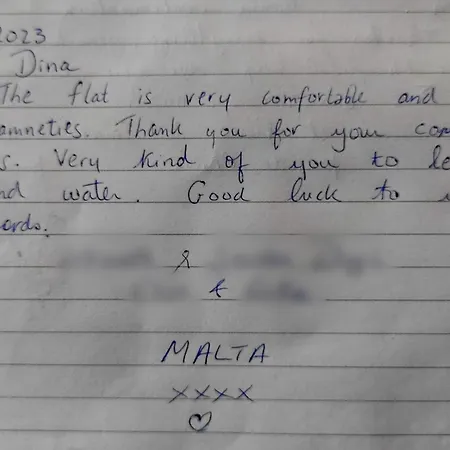 2023
Dina
The flat is very comfortable and
amneties. Thank you for your com
s. Very kind of you to le
nd water. Good luck to
ords.
&
&
MALTA
xxxx
♡